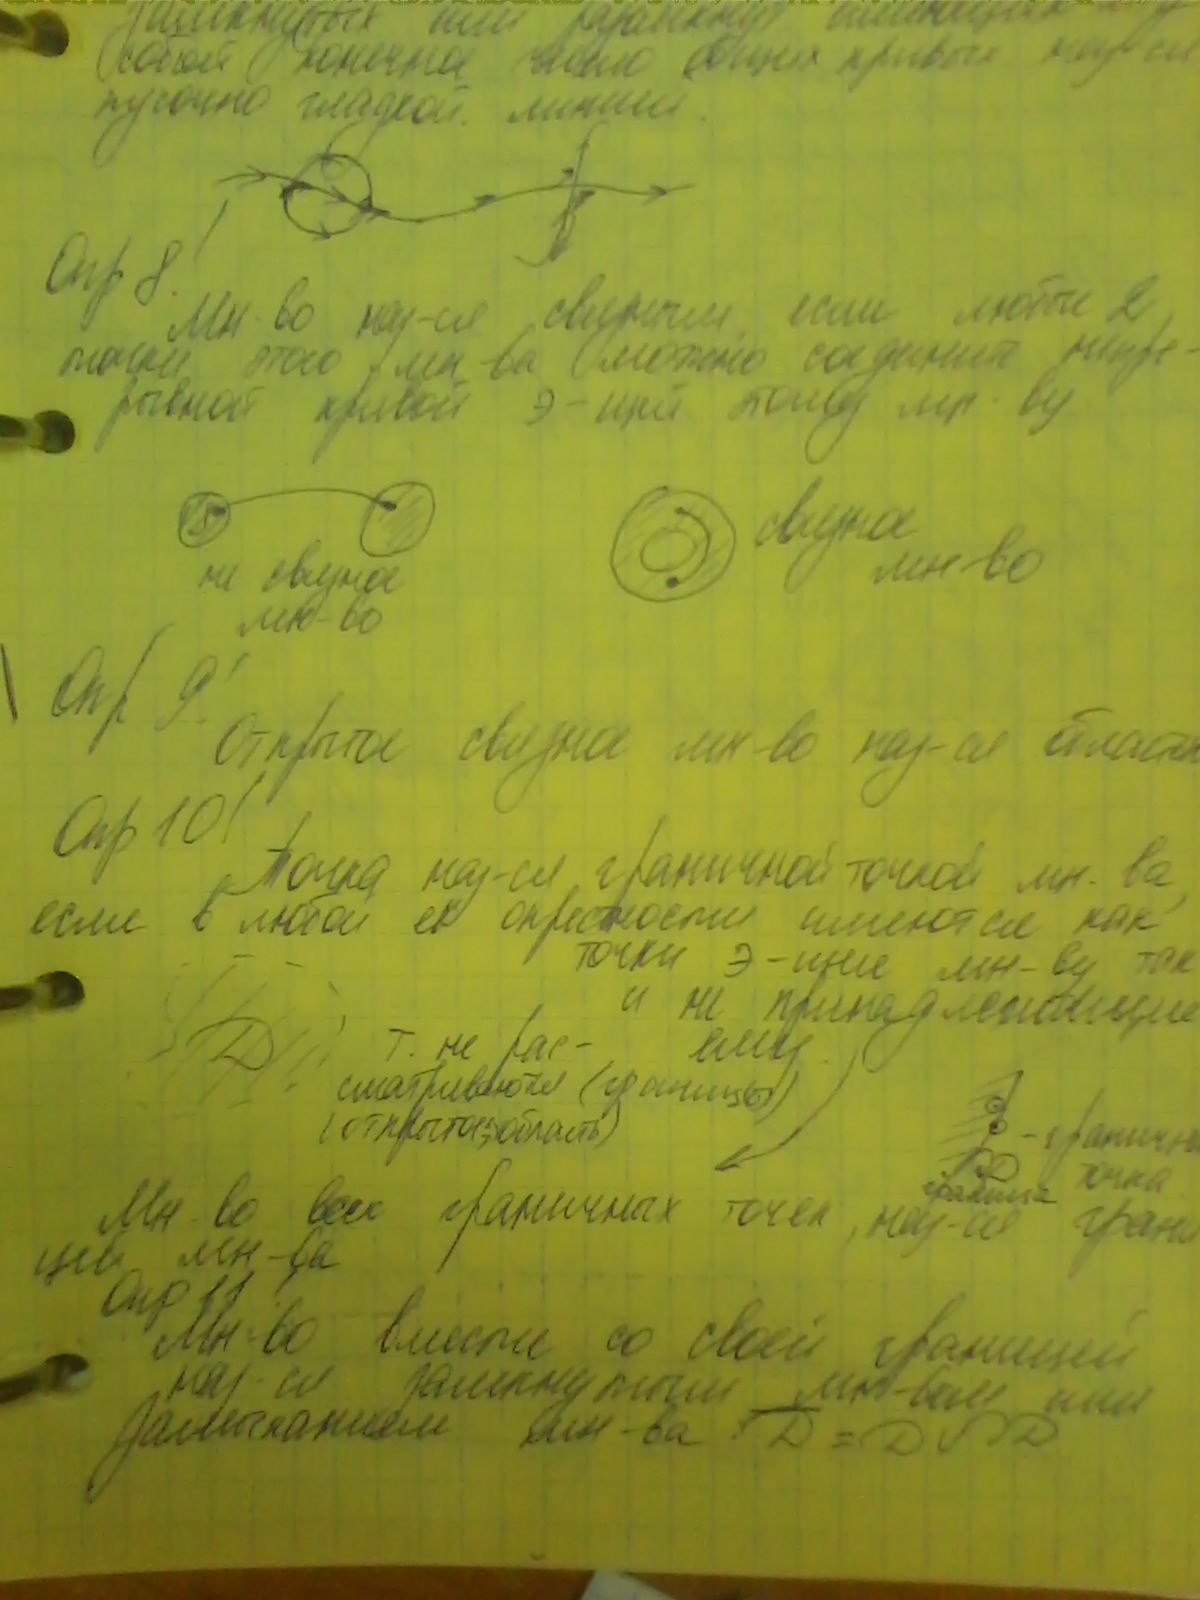 замкнутых или разомкнут имеющих
собой конечное число общих кривых наз-ся
кусочно гладкой линии.
Опр 8!
Мн-во наз-ся связным, если любые 2
точки этого мн-ва можно соединить непре-
рывной кривой Э-щей этому мн-ву
не связное
мн-во
связное
мн-во
Опр 9!
Открытое связное мн-во наз-ся
Опр 10!
Точка наз-ся граничной точкой мн-ва,
если в любой ее окрестности имеются как
точки Э-щие мн-ву так
и не принадлежащие
ему.
D
т. не рас-
сматриваются (границы)
(открытая область)
D
граница
точка
Мн-во всех граничных точек, наз-ся грани
цей мн-ва
Опр 11!
Мн-во вместе со своей границей
наз-ся замкнутым мн-вом или
Замыканием мн-ва D̅ = D ∪ ∂D